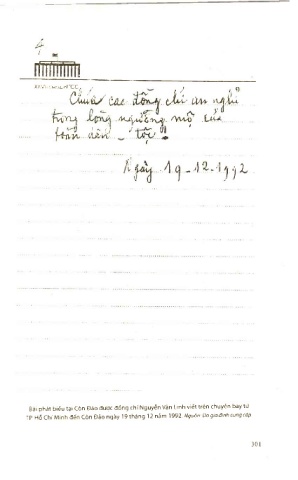 4
Chúc các đồng chí an nghỉ
trong lòng ngưỡng mộ của
toàn dân - tộc
Ngày 19-12-1992
Bài phát biểu tại Côn Đảo được đồng chí Nguyễn Văn Linh viết trên chuyến bay từ
TP. Hồ Chí Minh đến Côn Đảo ngày 19 tháng 12 năm 1992. Nguồn: Do gia đình cung cấp
301